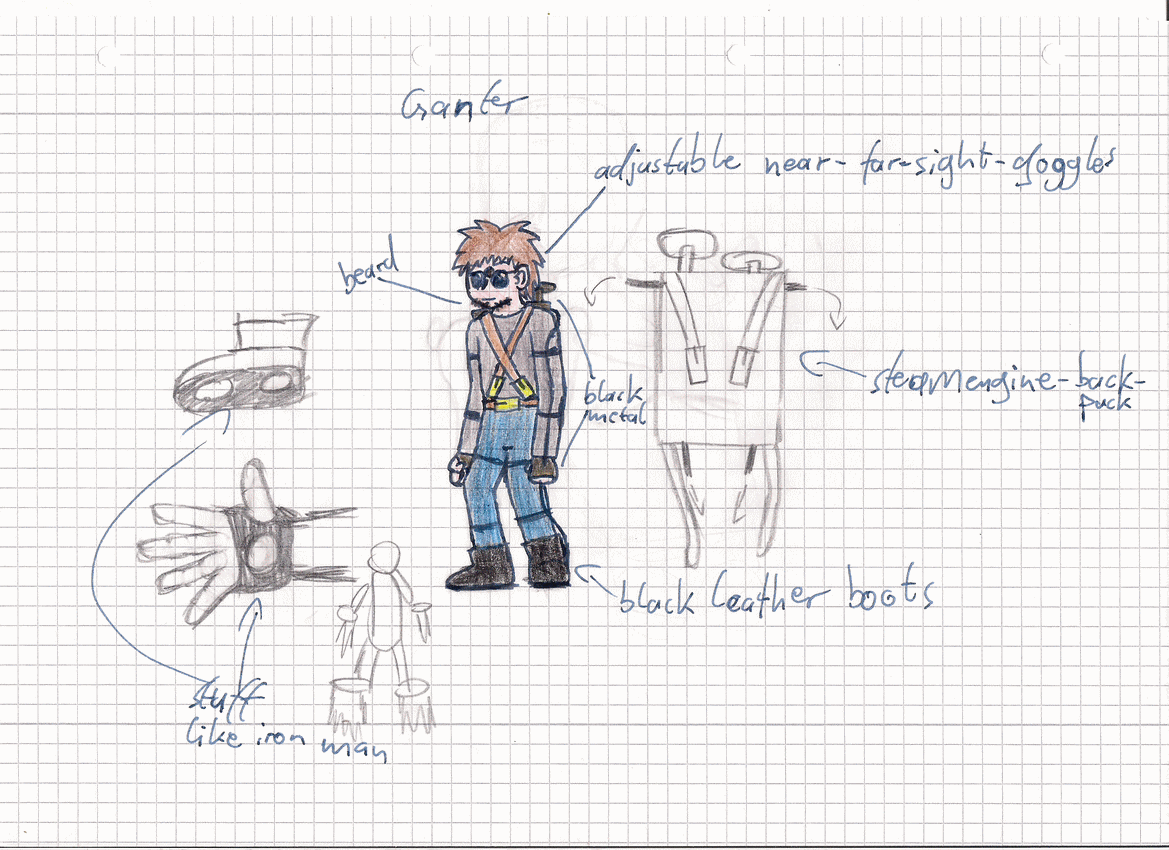 Ganter
adjustable near-far-sight-goggles
beard
steamengine-back-
pack
black
metal
black leather boots
stuff
like iron man